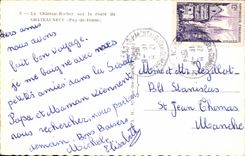 5 - Le Château-Rocher sur la route de
CHATEAUNEUF (Puy-de-Dôme)
nous avons
fait bon voyage.
je me baigne avec mes
petits amies dans la Sioule
Papa et Maman viennent
nous rechercher, nous partons
demain. Bons Baisers
Michelle Elisabeth
Mme et Mr Lepillot
Bd Stanislas
St Jean Thomas
Manche